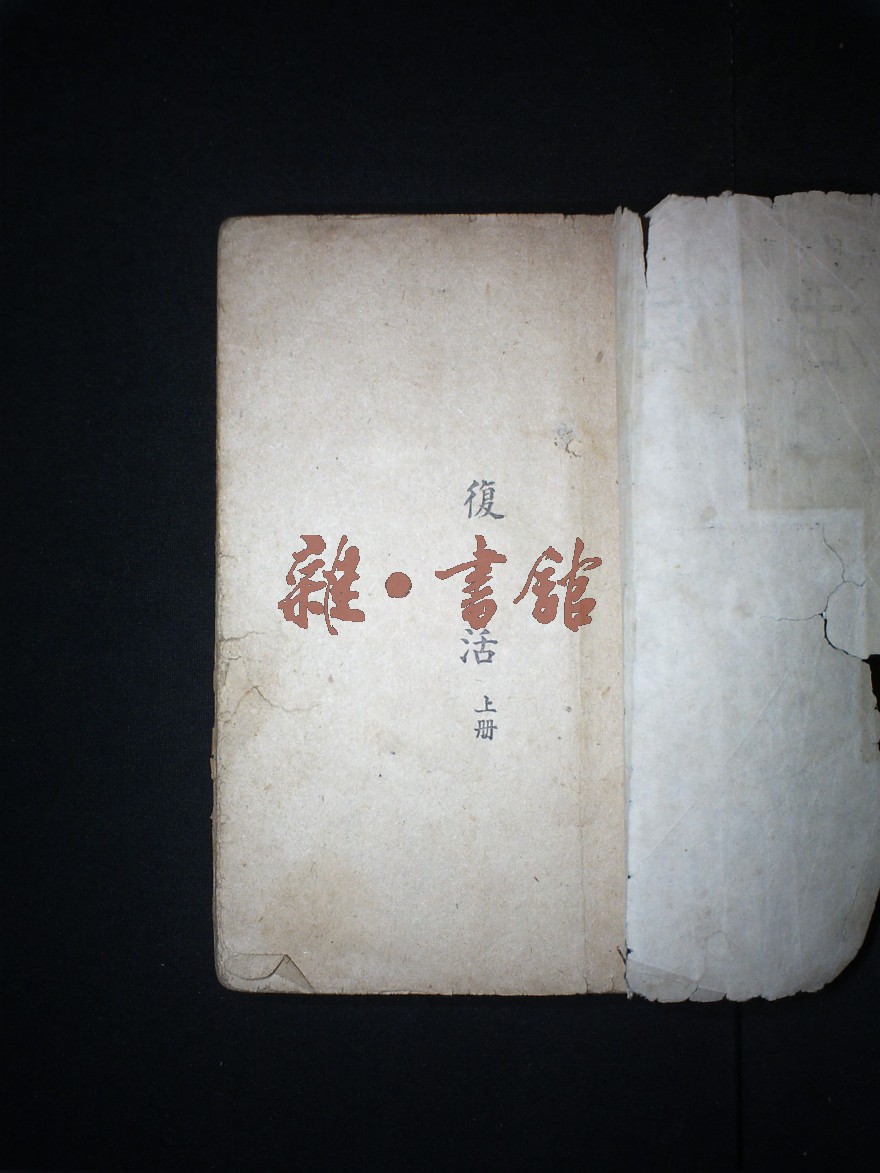 復活
上册
雜·書館